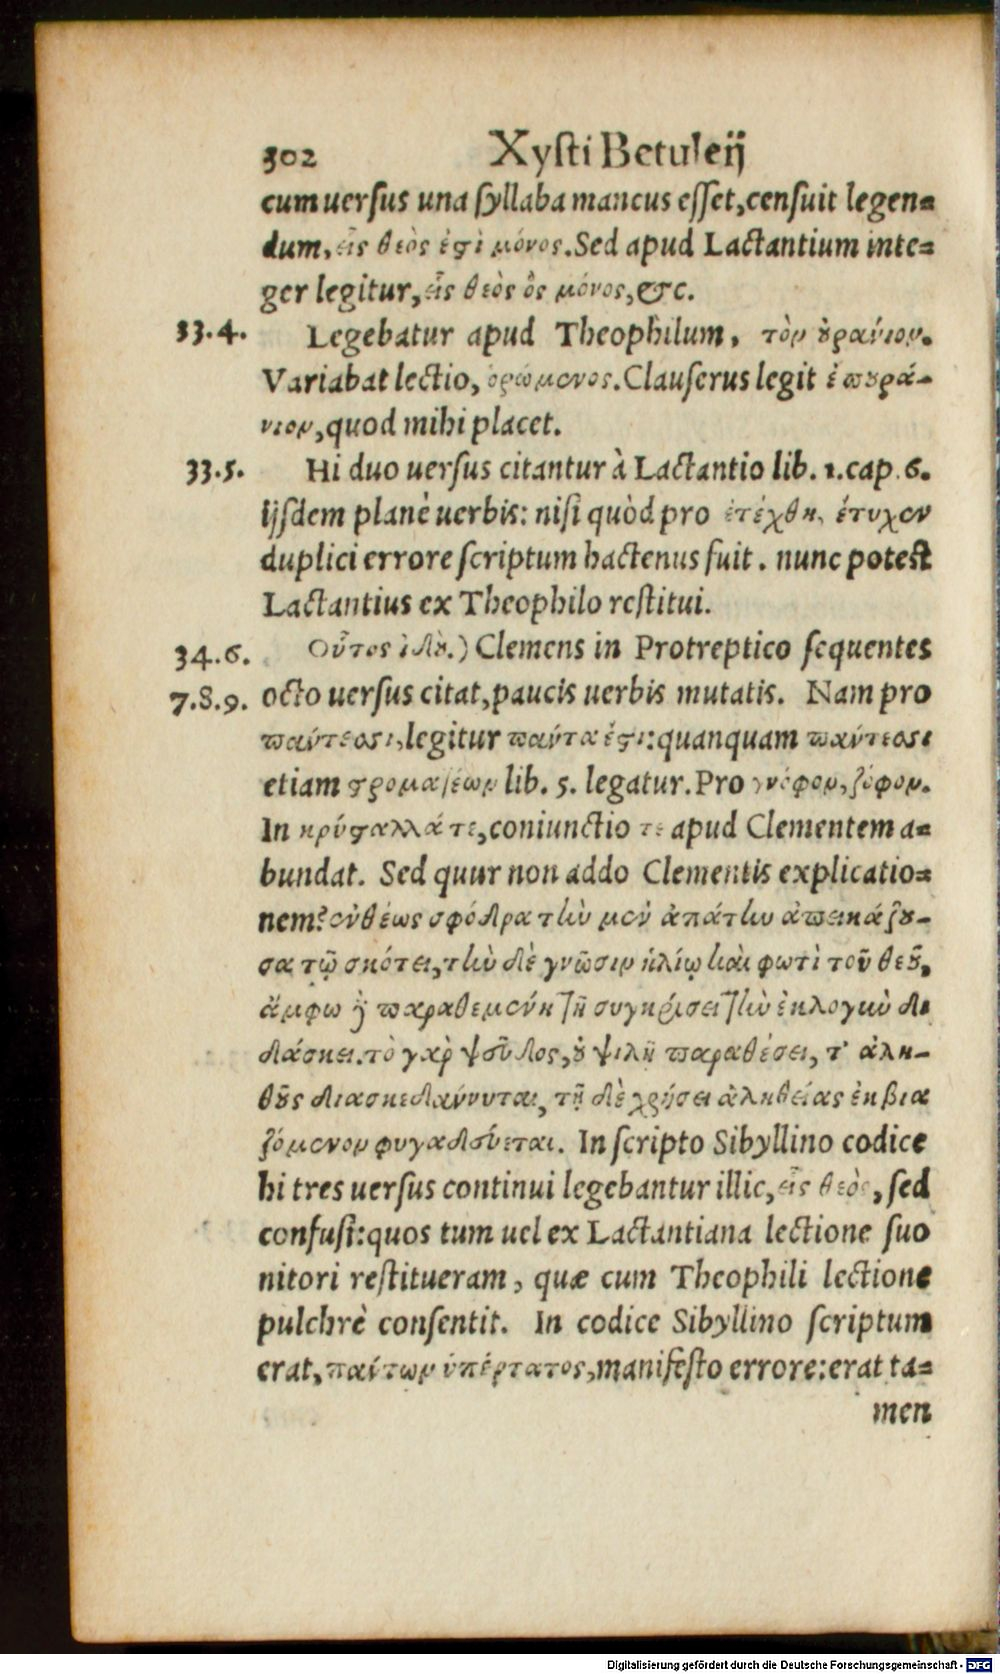 302 Xysti Betuleij
cum uersus una syllaba mancus esset, censuit legen=
dum, εἷς θεὸς ἐϛὶ μόνος. Sed apud Lactantium inte=
ger legitur, εἷς θεὸς ὃς μόνος, &c.
33.4. Legebatur apud Theophilum, τὸν ȣ̓ράνιον.
Variabat lectio, ὁρώμενος. Clauserus legit ἐπȣρά-
νιον, quod mihi placet.
33.5. Hi duo uersus citantur à Lactantio lib. 1. cap. 6.
ijsdem planè uerbis: nisi quòd pro ἐτέχθη, ἔτυχεν
duplici errore scriptum hactenus fuit. nunc potest
Lactantius ex Theophilo restitui.
34.6. Οὗτος ἰδȣ̀.) Clemens in Protreptico sequentes
7.8.9. octo uersus citat, paucis uerbis mutatis. Nam pro
πάντεσι, legitur πάντα ἐϛι: quanquam πάντεσι
etiam ϛρομασέων lib. 5. legatur. Pro γνόφον, ζόφον.
In κρύϛαλλά τε, coniunctio τε apud Clementem a=
bundat. Sed quur non addo Clementis explicatio=
nem? ἐνθέως σφόδρα τὴν μὲν ἀπάτην ἀπεικάζȣ-
σα τῷ σκότει, τὴν δὲ γνῶσιν ἡλίῳ καὶ φωτὶ τοῦ θεȣ͂,
ἄμφω δὲ παραθεμένη τῇ συγκρίσει τὴν ἐκλογὴν δι
δάσκει. τὸ γὰρ ψεῦδος, ȣ̓ ψιλῇ παραθέσει, τ' ἀλη-
θȣ͂ς διασκεδάννυται, τῇ δὲ χρήσει ἀληθείας ἐκβια
ζόμενον φυγαδεύεται. In scripto Sibyllino codice
hi tres uersus continui legebantur illic, εἷς θεὸς, sed
confusi: quos tum uel ex Lactantiana lectione suo
nitori restitueram, quæ cum Theophili lectione
pulchrè consentit. In codice Sibyllino scriptum
erat, πάντων ὑπέρτατος, manifesto errore: erat ta=
men
Digitalisierung gefördert durch die Deutsche Forschungsgemeinschaft - DFG